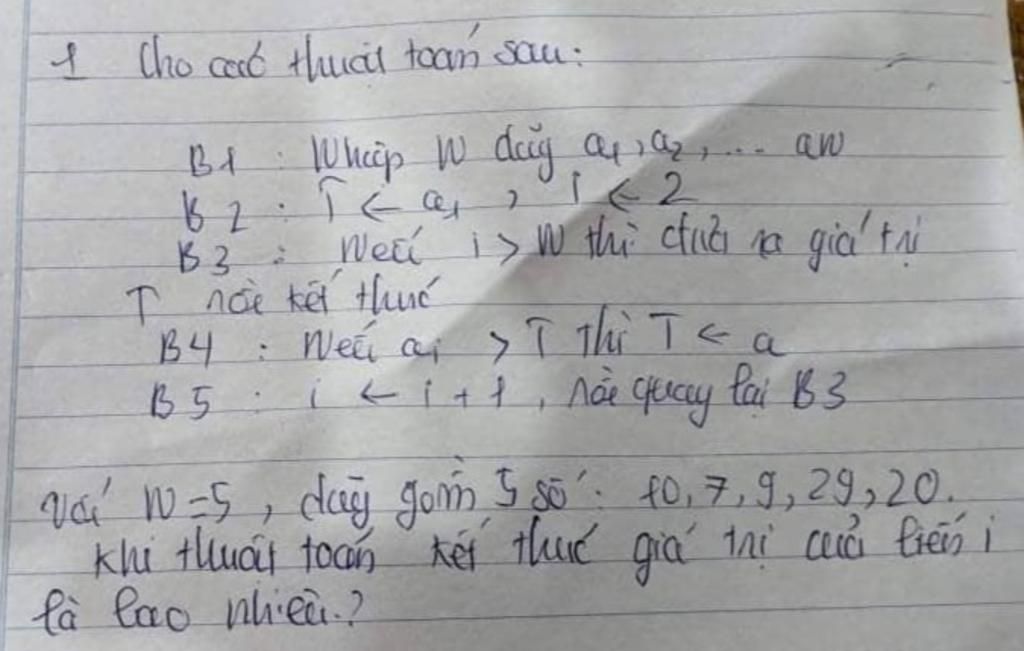 1 Cho các thuật toán sau:
B1 : Nhập N dãy a1, a2, ... aN
B2 : T ← a1 , i ← 2
B3 : Nếu i > N thì đưa ra giá trị
T rồi kết thúc
B4 : Nếu ai > T thì T ← a
B5 : i ← i + 1, rồi quay lại B3
Với N = 5, dãy gồm 5 số: 10, 7, 9, 29, 20.
Khi thuật toán kết thúc giá trị của biến i
là bao nhiêu.?